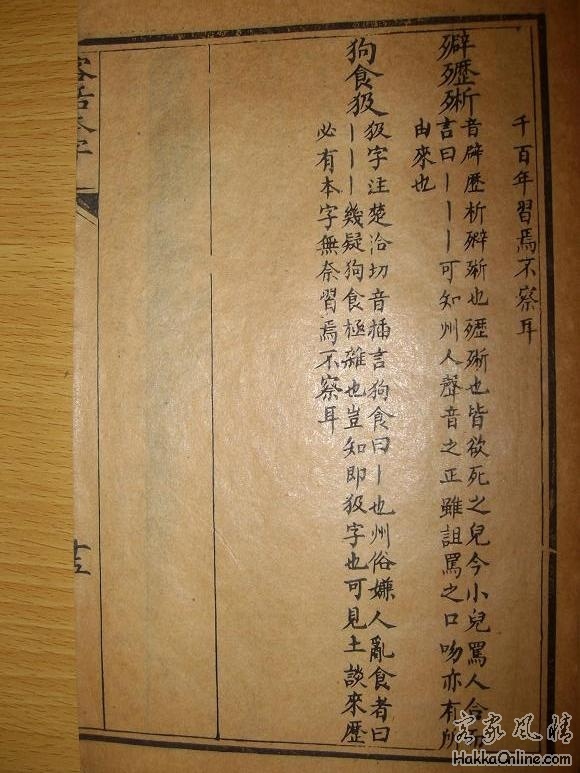 千百年習焉不察耳
音辟歷析也也皆欲死之皃今小兒罵人合
言曰丨丨丨可知州人聲音之正雖詛罵之口吻亦有所
由來也
狗食
字注楚洽切音插言狗食曰丨也州俗嫌人亂食者曰
丨丨丨幾疑狗食極雜也豈知即字也可見土談來歷
必有本字無奈習焉不察耳
客話本字
十三
客家風情
HakkaOnline.com